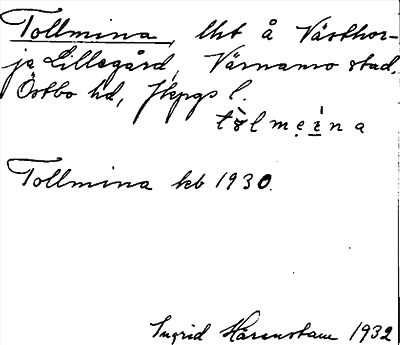 Tollmina, lht å Västhor-
ja Lillegård, Värnamo stad,
Östbo hd, Jkpgs l.
Tollmina kb 1930.
Ingrid Härenstam 1932